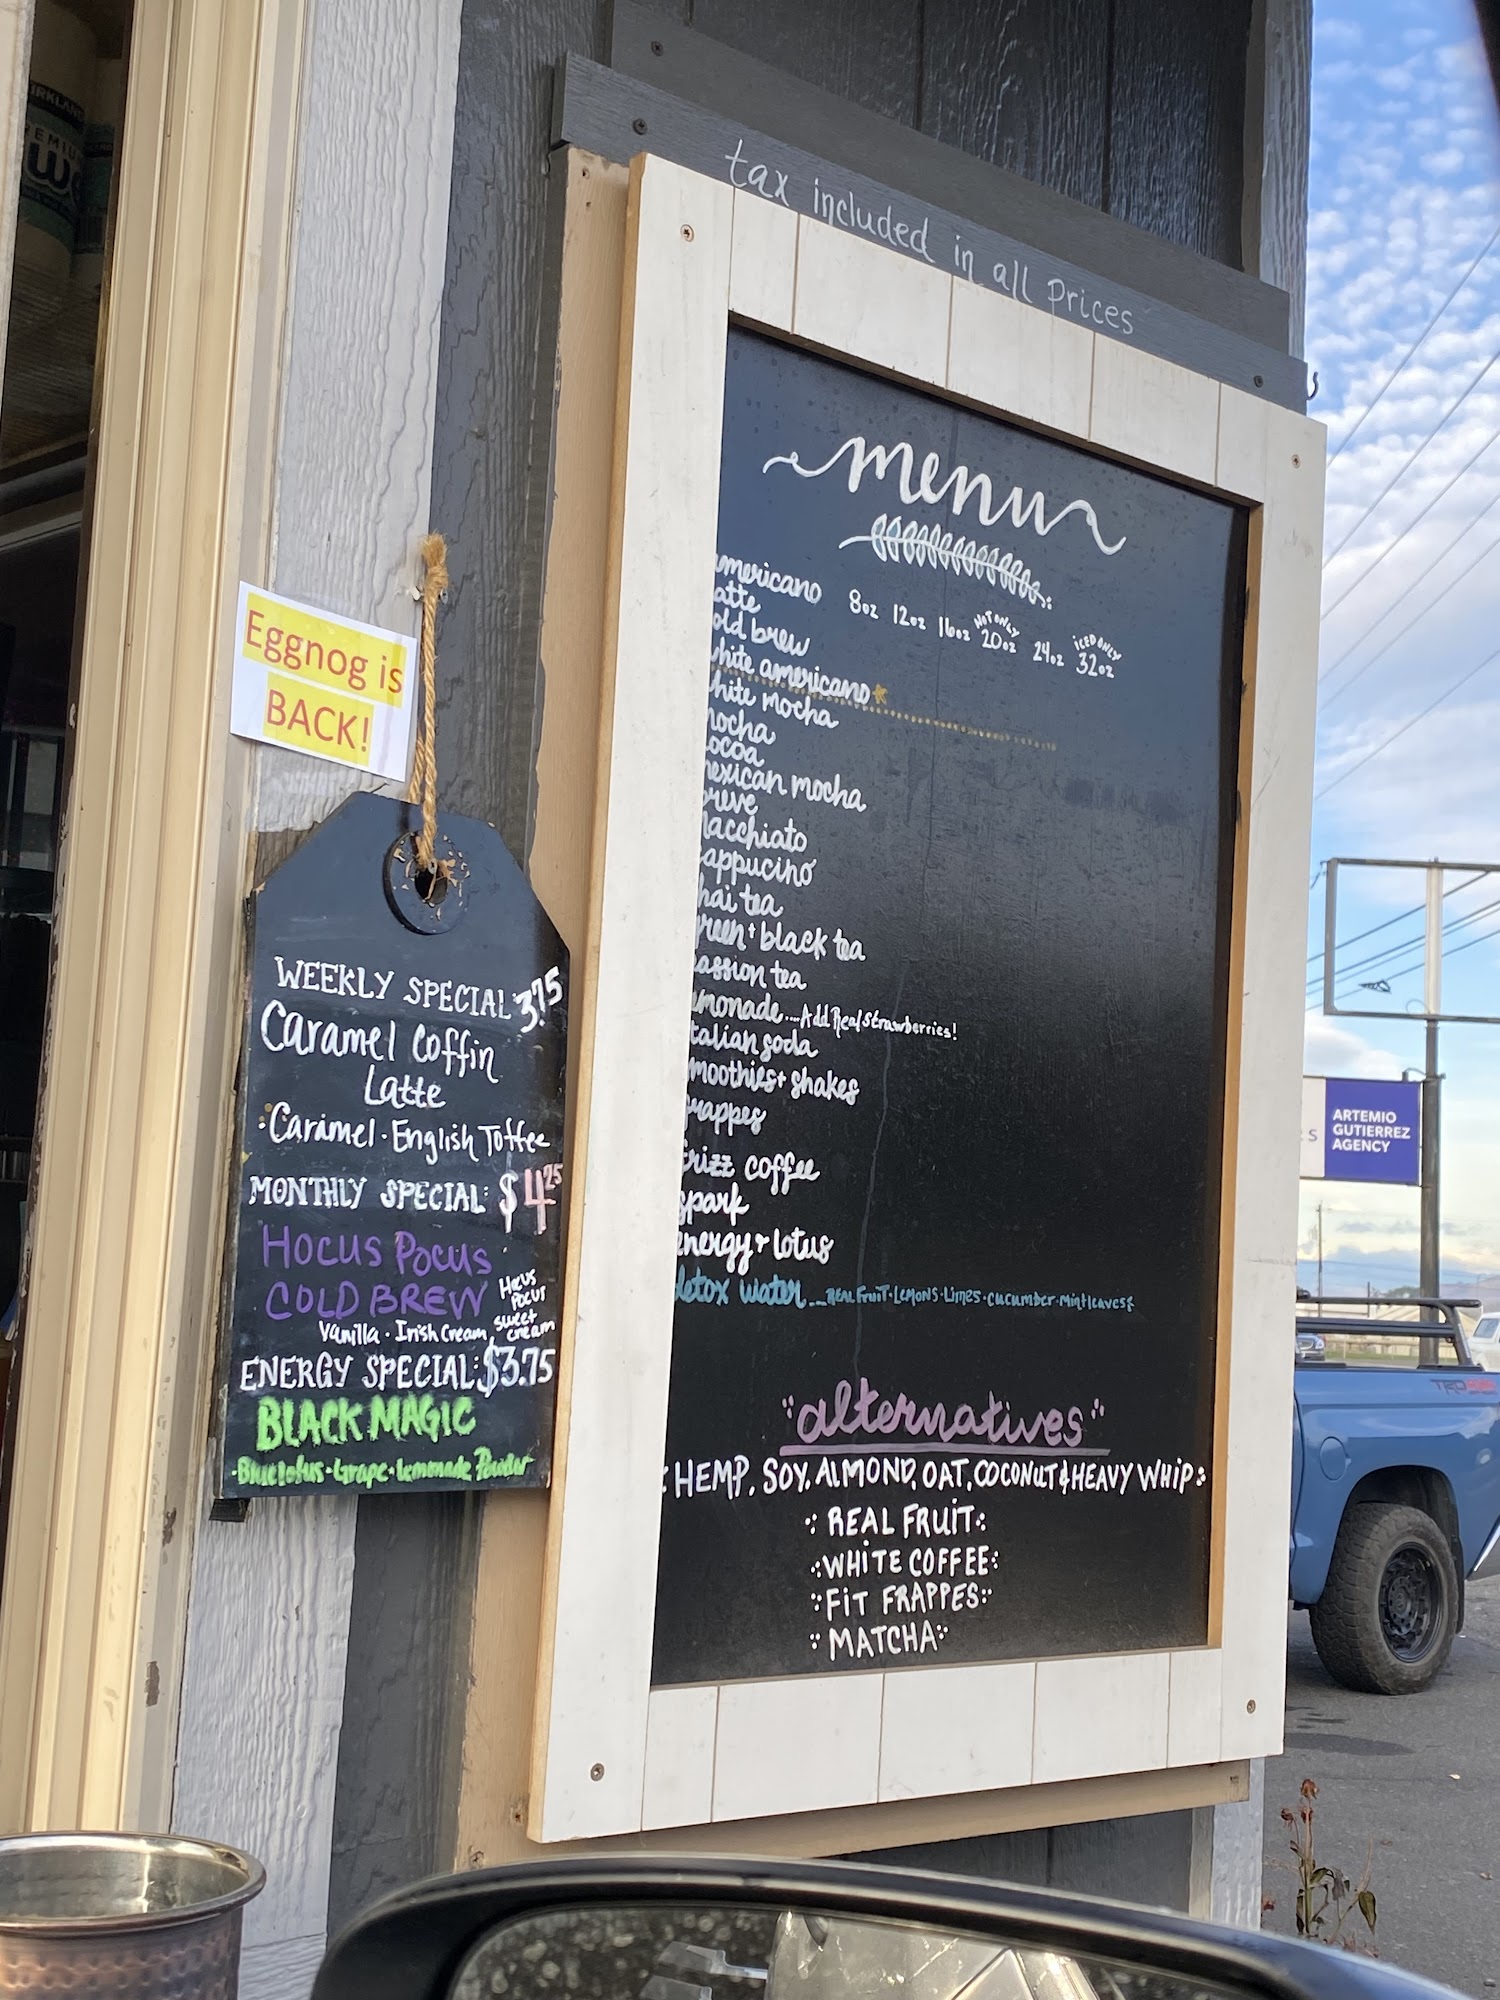 tax included in all Prices
menu
americano
latte
8oz 12oz 16oz HOT ONLY 20oz 24oz ICED ONLY 32oz
old brew
white americano
white mocha
mocha
ocoa
mexican mocha
breve
macchiato
cappucino
hai tea
green + black tea
passion tea
emonade....Add Real Strawberries!
talian soda
smoothies + shakes
frappes
frizz coffee
spark
energy + lotus
detox water....REAL FRUIT·LEMONS·Limes·cucumber·Mint leaves
"alternatives"
HEMP, SOY, ALMOND, OAT, COCONUT & HEAVY WHIP
REAL FRUIT
WHITE COFFEE
FIT FRAPPES
MATCHA
Eggnog is
BACK!
WEEKLY SPECIAL 3.75
Caramel Coffin
Latte
·Caramel·English Toffee
MONTHLY SPECIAL: $4.25
HOCUS POCUS
COLD BREW
Vanilla·Irish Cream, Hocus Pocus sweet cream
ENERGY SPECIAL: $3.75
BLACK MAGIC
·Blue lotus·Grape·Lemonade Powder
ARTEMIO
GUTIERREZ
AGENCY
TRD